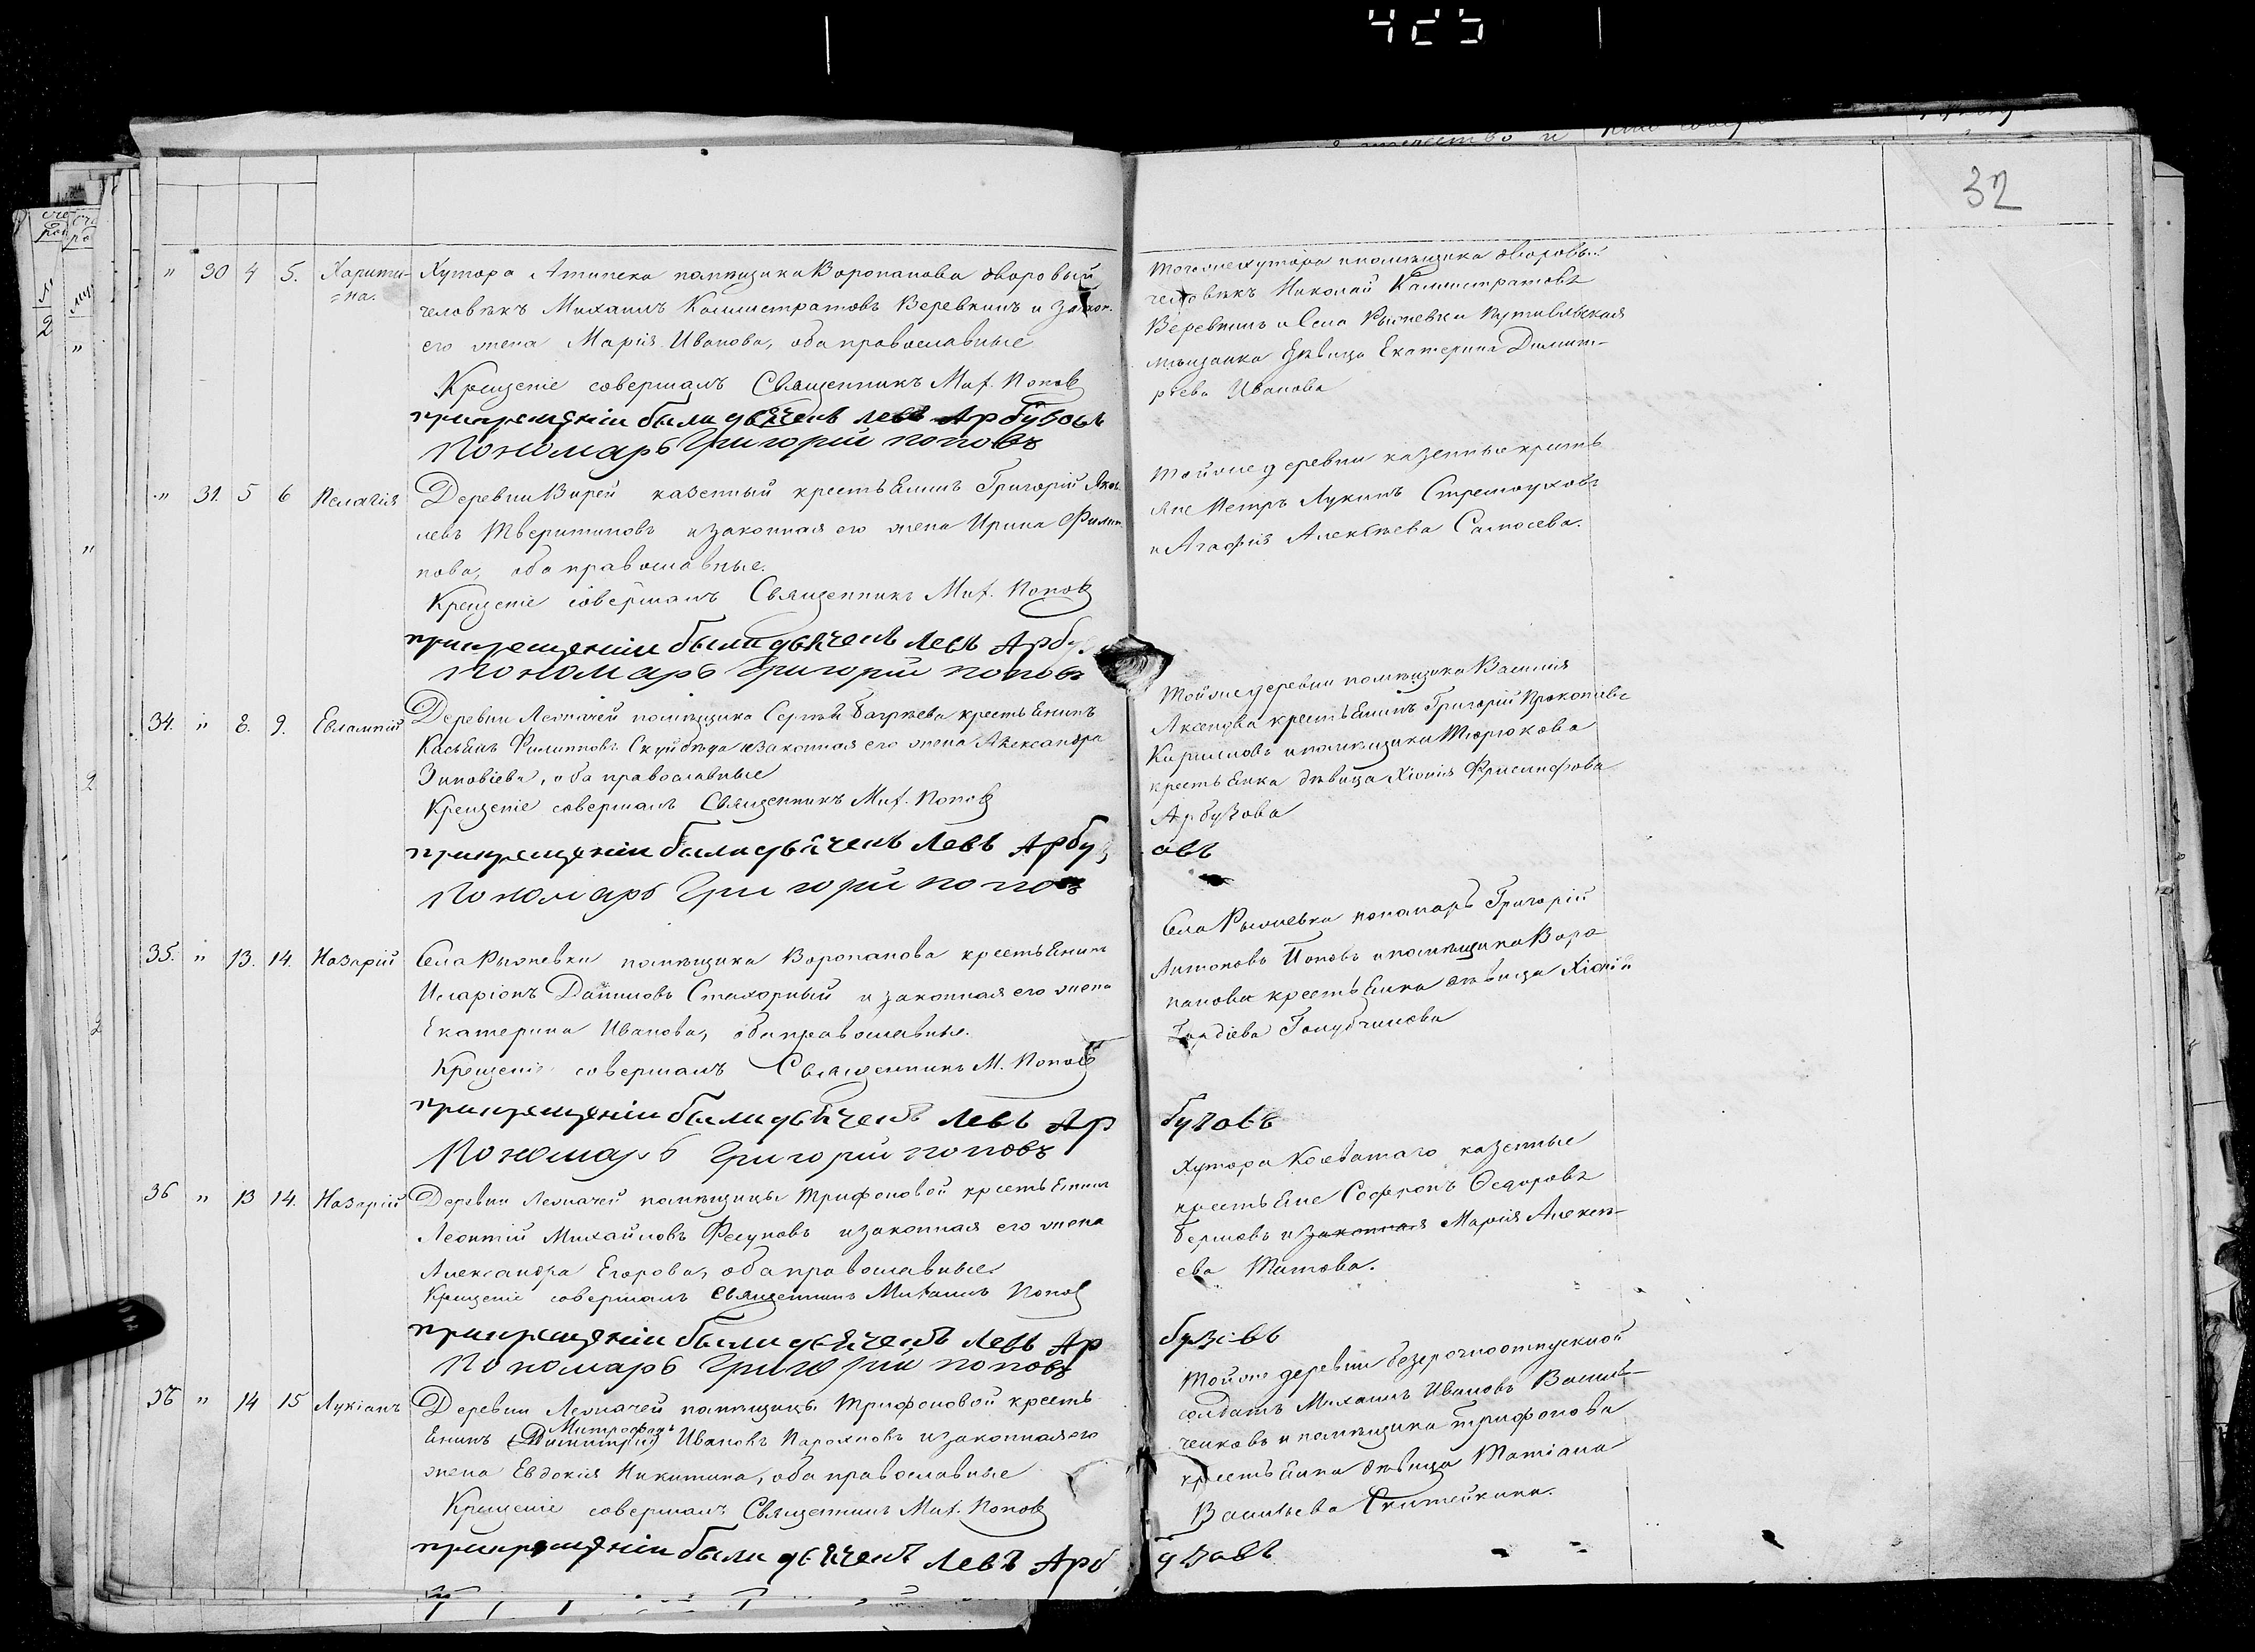 425
32
" 30 4 5. Харити-
=на.
Хутора Атинска помѣщика Воропанова дворовый
человѣкъ Михаилъ Каллистратовъ Веревкинъ и закон.
его жена Марія Иванова, оба православные
Крещеніе совершалъ Священникъ Миf. Поповъ
при крещеніи были дьячекъ Левъ Арбузовъ
Пономарь Григорій поповъ
Тогоже хутора и помѣщика дворовы..
человѣкъ Николай Каллистратовъ
Веревкинъ и Села Рыжевки Путивльская
мѣщанка дѣвица Екатерина Димит-
ріева Иванова
" 31. 5 6 Пелагія
Деревни Вирей казенный крестьянинъ Григорій Яков
левъ Тверитиновъ и законная его жена Ирина Филип
пова, оба православные.
Крещеніе совершалъ Священникъ Миf. Поповъ
при крещеніи были дьячекъ Левъ Арбу
Пономарь Григорій поповъ
Тойже деревни казенные кресть
яне Петръ Лукинъ Стремоуховъ
и Агафія Алексѣева Самосева.
34. " 8. 9. Евлампій
Деревни Лежачей помѣщика Сергѣй Багрѣева крестьянинъ
Касьянъ Филипповъ и законная его жена Александра
Зиновіева, оба православные
Крещеніе совершалъ Священникъ Миf. Поповъ
при крещеніи были дьячекъ Левъ Арбуз
Пономарь Григорій поповъ
Тойже деревни помѣщика Василія
Аксенова крестьянинъ Григорій Прокопіевъ
Кириловъ и помѣщика Тюрюкова
крестьянка дѣвица Хіонія
Арбузова
овъ
35. " 13. 14. Назарій
Села Рыжевки помѣщика Воропанова крестьянинъ
Иларіонъ Даниловъ Стахорный и законная его жена
Екатерина Иванова, оба православные.
Крещеніе совершалъ Священникъ М. Поповъ
при крещеніи были дьячекъ Левъ Ар
Пономарь Григорій поповъ
Села Рыжевки пономарь Григорій
Антоновъ Поповъ и помѣщика Воро
панова крестьянка дѣвица Хіонія
Гордіева Голубчикова
бузовъ
36 " 13 14. Назарій
Деревни Лежачей помѣщицы Трифоновой крестьянинъ
Леонтій Михайловъ Фесуновъ и законная его жена
Александра Егорова, оба православные.
Крещеніе совершалъ Священникъ Миfаилъ Поповъ
при крещеніи были дьячекъ Левъ Ар
Пономарь Григорій поповъ
Хутора казенные
крестьяне Софронъ Ѳедоровъ
Берловъ и законная Марія Алексѣ-
ева Титова.
бузовъ
37 " 14 15 Лукіанъ
Деревни Лежачей помѣщицы Трифоновой кресть
Митрофанъ
янинъ (Димитрій) Ивановъ Парахновъ и законная его
жена Евдокія Никитина, оба православные
Крещеніе совершалъ Священникъ Миf. Поповъ
при крещеніи были дьячекъ Левъ Арб
Тойже деревни безсрочноотпускной
солдатъ Михаилъ Ивановъ Василь-
ченковъ и помѣщика Трифонова
крестьянка дѣвица Татіана
Васильева
узовъ